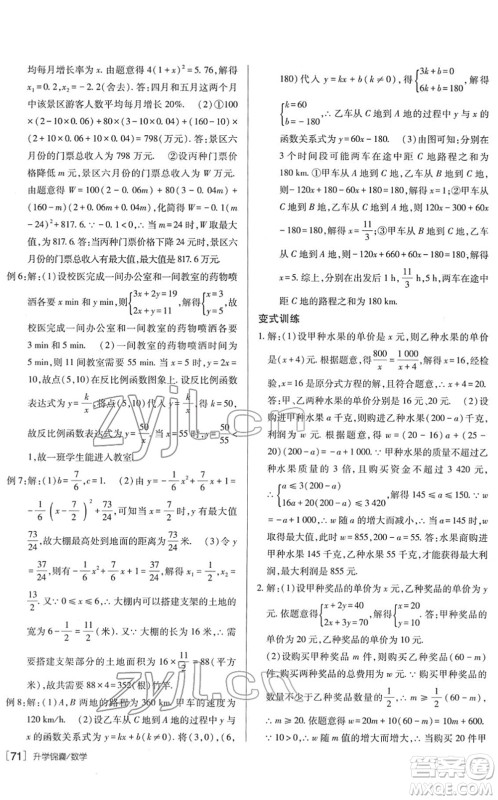 均增长率为 x. 由题意得 4(1+x)²=5.76, 解得
x₁=0.2, x₂=-2.2(舍去). 因此四月和五月这两个月
中该景区游客人数平均每月增长 20%. (2)①100
×(2-10×0.06)+80×(3-10×0.04)+(160-10)×
(2+10×0.06+10×0.04)=798(万元). 答:景区六
月份的门票总收入为 798 万元. ②设丙种门票价
格降低 m 元, 由题意得 W=100(2-0.06m)+80(3-0.04m)+
(160-m)(2+0.06m+0.04m), 化简得 W=-0.1(m
-24)²+817.6. ∵-0.1<0, ∴当 m=24 时, W 取最
大值为 817.6. 答:当丙种门票价格下降 24 元时, 景区六
月份的门票总收入有最大值为 817.6 万元.
例 6:解:(1)设校医完成一间办公室和一间教室的药物喷
洒各要 x min 和 y min, 则{3x+2y=19, 2x+y=11, 解得{x=3, y=5. 故
校医完成一间办公室和一间教室的药物喷洒各要 3 min 和
5 min. (2)一间教室的药物喷洒时间为
5 min, 则 11 个房间需要 55 min, 当 x=5 时, y=2x=
10, 故点 A(5,10). 设反比例函数
表达式为 y=k/x, 将点(5,10)代入, 得 k=50,
故反比例函数表达式为 y=50/x, 当 x=55 时, y=50/55<
1, 故一班学生能进入教室.
例 7:解:(1)b=7/6, c=1. (2)由 y=-1/6x²+7/6x+1=
-1/6(x-7/2)²+73/24, 可知当 x=7/2 时, y 有最大值
73/24, 故大棚最高处到地面的距离为 73/24 米. (3)令 y=
37/24, 则有 -1/6x²+7/6x+1=37/24, 解得 x₁=1/2, x₂=
13/2. 又∵0≤x≤6, ∴大棚内可以搭建支架的土地的
宽为 6-1/2=11/2(米). 又大棚的长为 16 米, ∴需要
搭建支架部分的土地面积为 16×11/2=88(平方米).
故共需要 88×4=352(根)竹竿.
例 8:解:(1)A,B 两地的路程为 360 km, 甲车的速度为
120 km/h. (2)设乙车从 C 地到 A 地的过程中 y 与
x 的函数关系式为 y=kx+b(k≠0), 将(3,0),(6,
180)代入 y=kx+b(k≠0), 得{3k+b=0, 6k+b=180, 解得
{k=60, b=-180. ∴乙车从 C 地到 A 地的过程中 y 与 x 的
函数关系式是 y=60x-180. (3)由图可知, 分别在
3 个时间段可能两车在途中距 C 地路程之和为
180 km. ①甲车从 A 地到 C 地, 乙车从 B 地到 C 地,
则 -120x+180-60x+180=180, 解得 x=1; ②甲车
从 C 地到 A 地, 乙车从 C 地到 A 地, 则 120x-300+60x-
180=180, 解得 x=11/3; ③甲车从 A 地到 C 地, 乙车从
C 地到 A 地, 则 -120x+660+60x-180=180, 解得
x=5. 综上, 分别在出发后 1 h, 11/3 h, 5 h, 两车在途中距
C 地的路程之和为 180 km.
变式训练
1. 解:(1)设甲种水果的单价是 x 元, 则乙种水果的单价
是(x+4)元. 根据题意, 得 800/x=1 000/(x+4), 解得 x=16, 经检
验, x=16 是原分式方程的解, 且符合题意. ∴x+4=
20. 答:甲、乙两种水果的单价分别为 16 元、20 元. (2)
设购进甲种水果 a 千克, 则购进乙种水果(200-a)千克,
利润为 w 元. 由题意, 得 w=(20-16)a+(25-
20)(200-a)=-a+1 000. ∵甲种水果不超过乙种
水果的 3 倍, 且购买资金不超过 3 420 元,
∴{a≤3(200-a), 16a+20(200-a)≤3 420, 解得 145≤a≤150. ∵-1
<0, ∴w 随 a 的增大而减小. ∴当 a=145 时, w
取得最大值, 此时 w=855, 200-a=55. 答:水果商店
购进甲种水果 145 千克, 乙种水果 55 千克, 才能获得
最大利润, 最大利润是 855 元.
2. 解:(1)设甲种奖品的单价为 x 元, 乙种奖品的单价为
y 元. 依题意得{x+2y=40, 2x+3y=70, 解得{x=20, y=10. 答:甲种奖品
的单价为 20 元, 乙种奖品的单价为 10 元.
(2)设购买甲种奖品 m 件, 则购买乙种奖品(60-m)
件, 设购买两种奖品的总费用为 w 元. ∵购买乙种
奖品的件数不超过甲种奖品件数的 1/2, ∴60-m
≤1/2m, ∴m≥40. 依题意, 得 w=20m+10(60-m)=
10m+600. ∵10>0, ∴w 随 m 值的增大而增大,
∴当学校购买 40 件甲
[71] 升学锦囊/数学
zyjl.cn
zyjl.cn